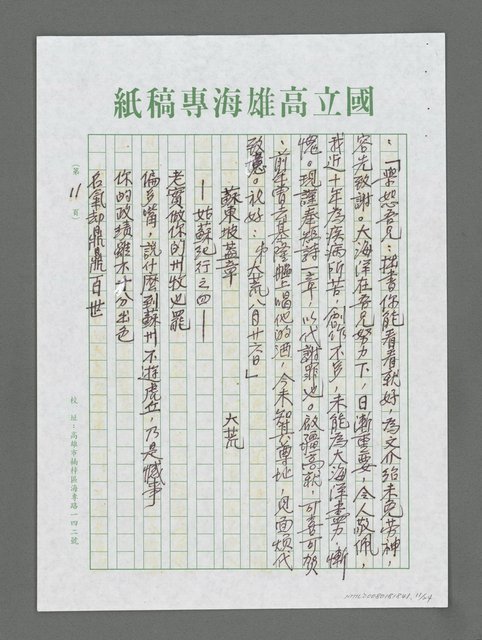 國立高雄海專稿紙
：「學恕吾兄：拙書你能看看就好，為文介紹未免勞神，
容先致謝。大海洋在吾兄努力下，日漸重要，令人敬佩，
我近十年為疾病所苦，創作不豐，未能為大海洋盡力，慚
愧。現謹奉短詩一章，以代謝罪也。啟疆高就，可喜可賀
，前年曾去基隆艦上喝他的酒，今未知其尊址，見面煩代
致意。祝好：弟大荒八月廿六日」
蘇東坡蓋章
—姑蘇紀行之四—
大荒
老實做你的州牧也罷
偏多嘴，說什麼到蘇州不遊虎丘，乃是憾事
你的政績雖不十分出色
名氣却鼎鼎百世
（第11頁）
校址：高雄市楠梓區海專路一四二號
NMLT0080181841 11/24